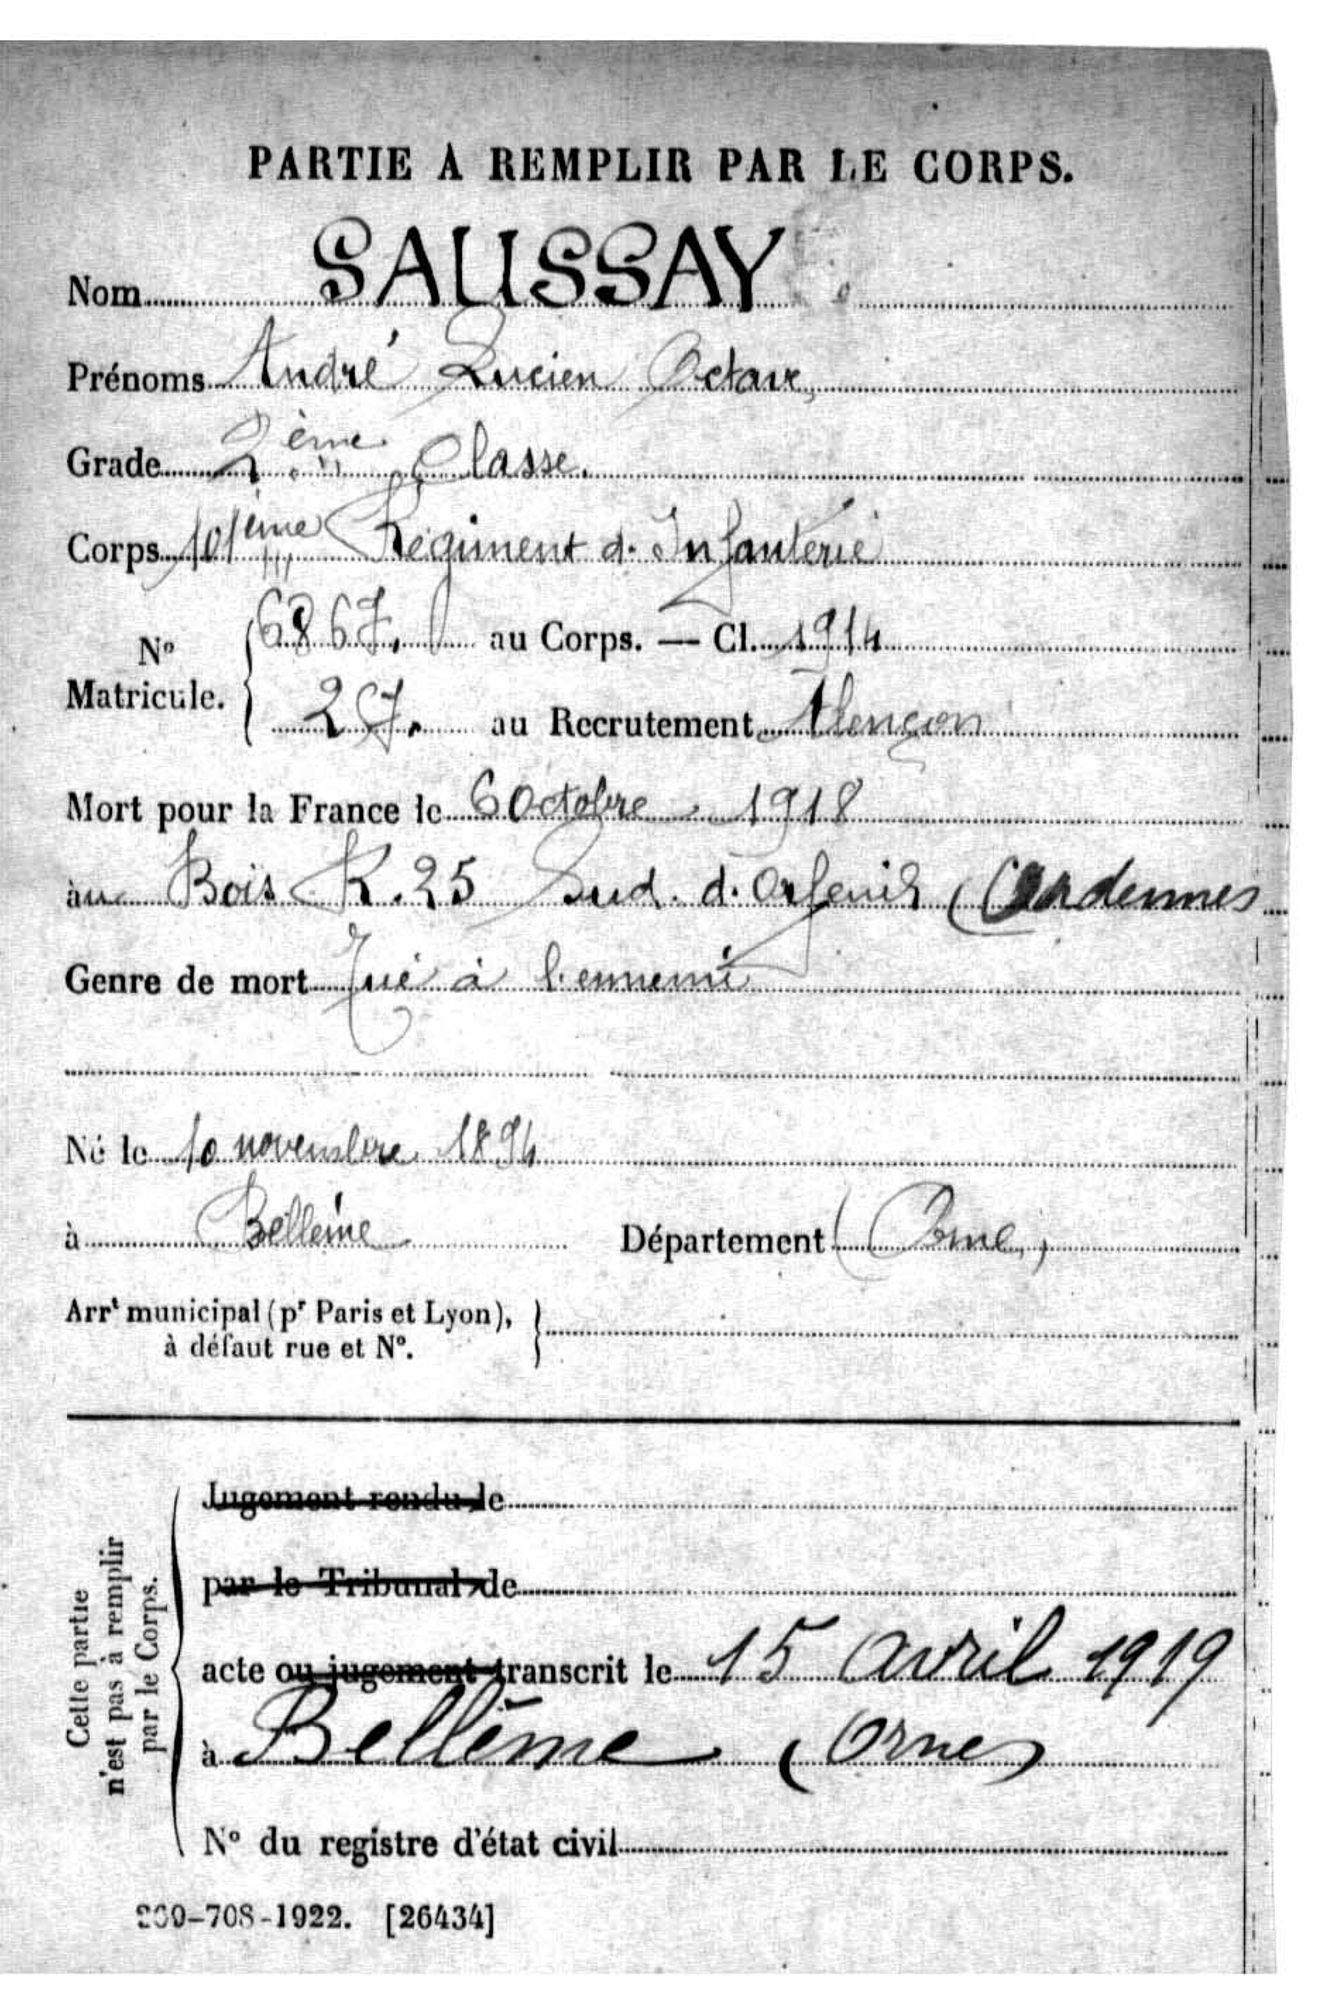 PARTIE A REMPLIR PAR LE CORPS.
Nom SAUSSAY
Prénoms André Lucien Octave
Grade 2ème Classe.
Corps 101ème Régiment d. Infanterie
No Matricule. { 6867. au Corps. — Cl. 1914
27. au Recrutement Alençon
Mort pour la France le 6 Octobre 1918
au Bois K.25 Sud. d. Orfeuil (Ardennes
Genre de mort Tué à l. ennemi
Né le 10 novembre 1894
à Bellême Département (Orne)
Arrt municipal (pr Paris et Lyon),
à défaut rue et No.
Cette partie
n'est pas à remplir
par le Corps.
Jugement rendu le
par le Tribunal de
acte ou jugement transcrit le 15 avril 1919
à Bellême (Orne)
No du registre d'état civil
-708-1922. [26434]